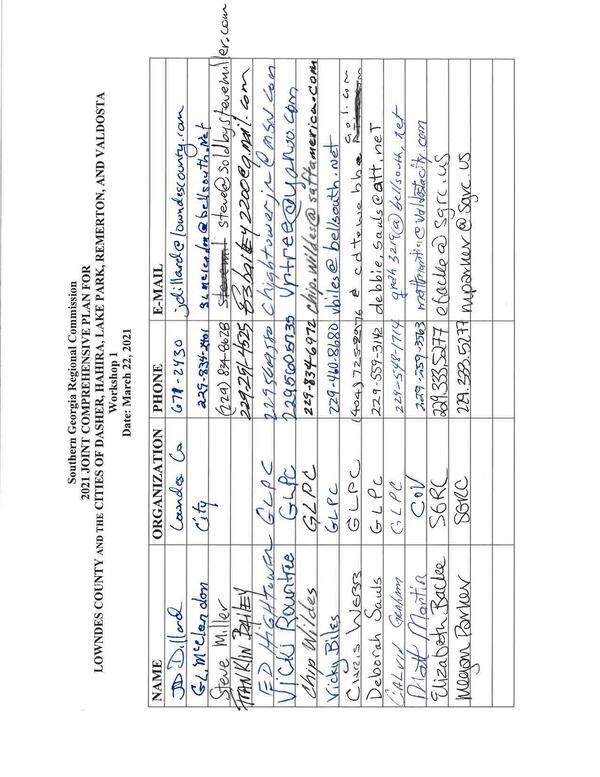 Southern Georgia Regional Commission
2021 JOINT COMPREHENSIVE PLAN FOR
LOWNDES COUNTY AND THE CITIES OF DASHER, HAHIRA, LAKE PARK, REMERTON, AND VALDOSTA
Workshop 1
Date: March 22, 2021
NAME ORGANIZATION PHONE E-MAIL
JD Dillard Lowndes Co 671-2430 jdillard@lowndescounty.com
GL McClendon City
Steve Miller (229) 834-8628 steve@soldbystevemiller.com
FRANKLIN BAILEY 229-291-4525
ED HIGHTOWER GLPC 2295691580 chightowerjr@msn.com
Vicki Rountree GLPC 2295605735 vrtree@yahoo.com
Chip Wildes GLPC 229-834-6972 chip.wildes@saftamerica.com
Vicky Biles GLPC 229-460-8680 vbiles@bellsouth.net
Chris Webb GLPC (404)
Deborah Sauls GLPC 229-559-3142 debbie.sauls@att.net
CALVIN GRAHAM GLPC 229-548-1714
Matt Martin COV 229-259-3563 mattmartin@valdostacity.com
Elizabeth Backe SGRC 229.333.5277 ebacke@sgrc.us
Megan Parker SGRC 229.333.5277 mparker@sgrc.us